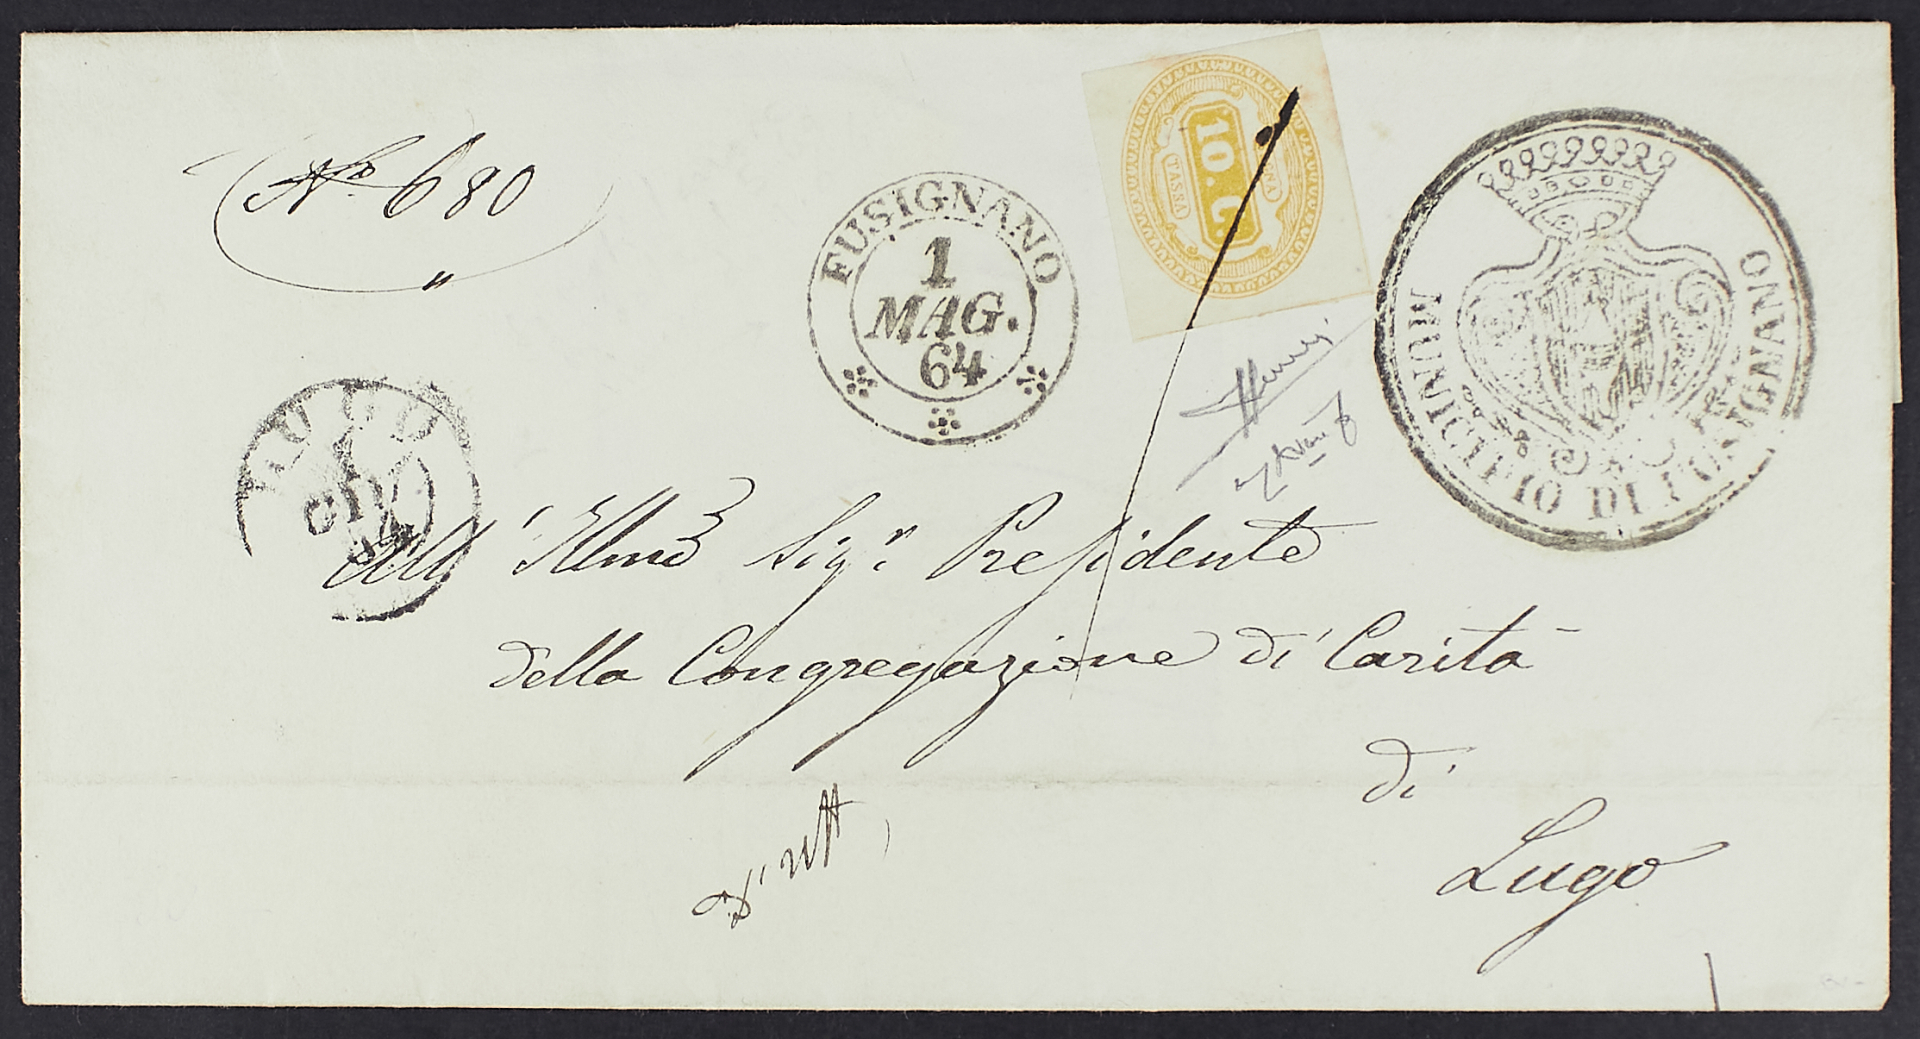 N.ro 680
"
FUSIGNANO
1
MAG.
64
10. C.
TASSA
MUNICIPIO DI FUSIGNANO
LUGO
1
GIU
64
All' Illmo Sig.r Presidente
della Congregazione di Carità
di
Lugo
D'uff